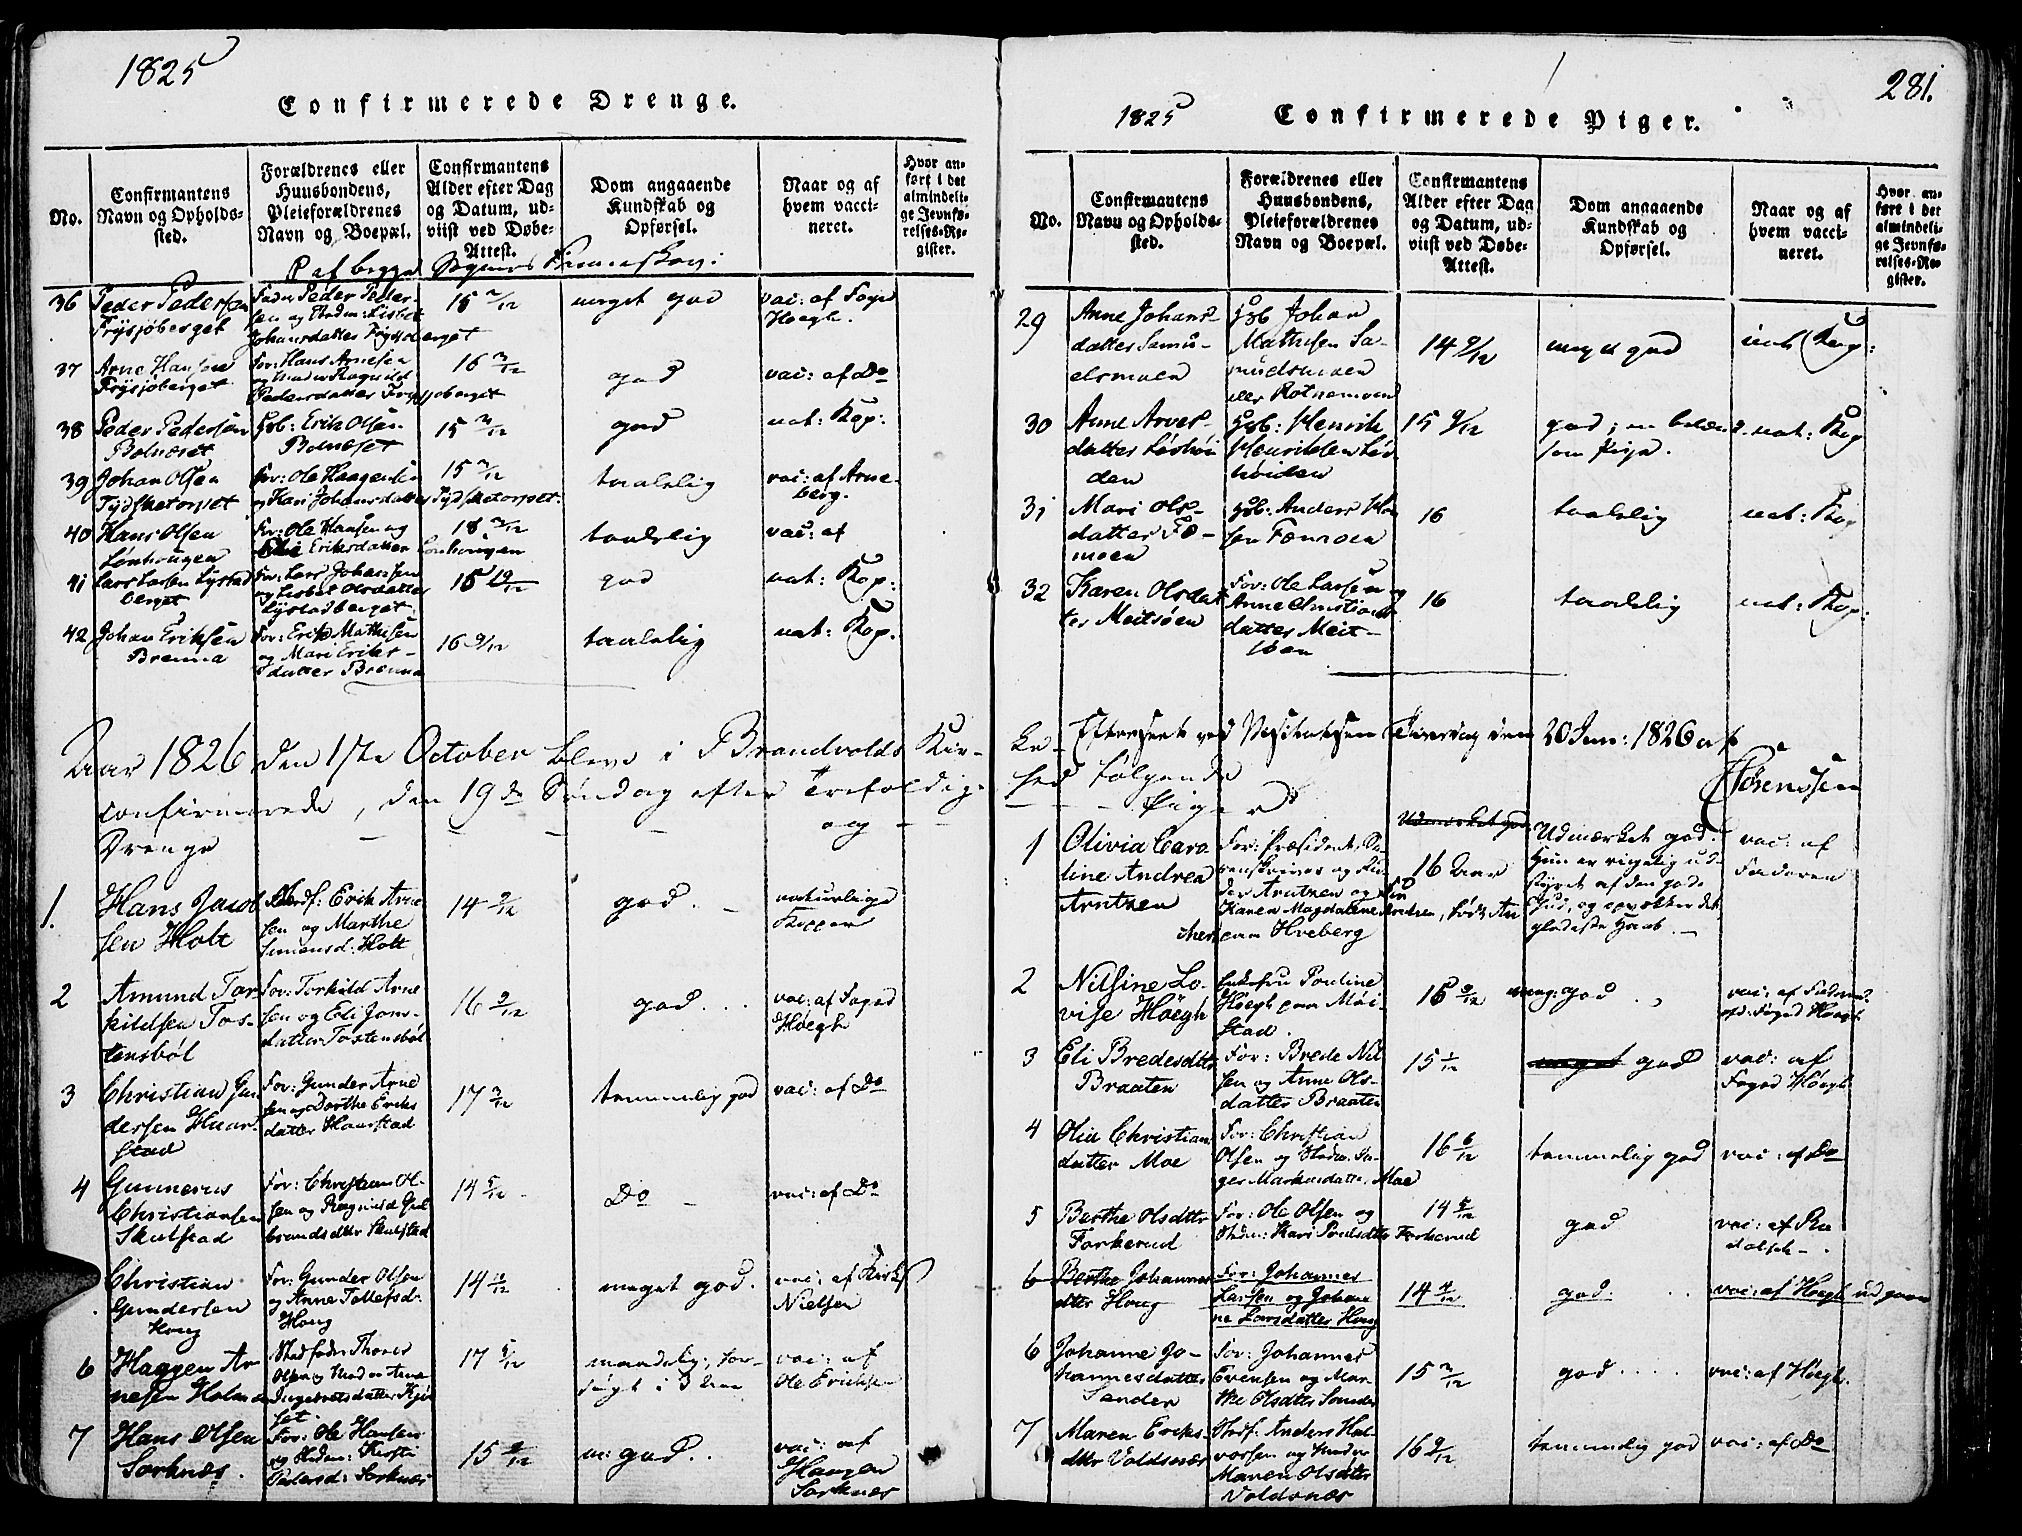 1825
Confirmerede Drenge.
No.
Confirmantens
Navn og Opholds-
sted.
Forældrenes eller
Huusbondens,
Pleieforældrenes
Navn og Boepæl.
Confirmantens
Alder efter Dag
og Datum, ud-
viist ved Døbe-
Attest.
Dom angaaende
Kundskab og
Opførsel.
Naar og af
hvem vacci-
neret.
Hvor an-
ført i det
almindeli-
ge Jevnfø-
relses-Re-
gister.
36 Peder Pedersen
Frysjøberget
Fader Peder Peder-
sen og
Johansdatter Frysjoberget
15 2/12
meget god
vac: af Foged
Hoegh.
37 Arne Hansen
Frysjøberget
For: Hans Arnesen
og
Pedersdatter Frysjoberget
16 3/12
god
vac: af Do
38 Peder Pedersen
Bolneset
Hsb: Erik Olsen
Bolneset
15 3/12
god
nat: Kop:
39 Johan Olsen
Tydsketorpet
For: Ole Haagensen
og Kari Johansdatter Tydsketorpet:
15 2/12
taalelig
vac: af Arne-
berg.
40 Hans Olsen
Lønhougen
For: Ole Hansen og
Eriksdatter Lonhougen
18 3/12
taalelig
vac: af
41 Lars Larsen Lystad
berget
For: Lars Johansen
og Lisbet Olsdatter
Lystadberget
15 10/12
god
nat: Kop:
42 Johan Eriksen
Brenna
For: Erik Mathisen
og Mari Eriks-
datter Brenna
16 9/12
taalelig
nat: Kop.
Aar 1826 den 1ste October bleve i Brandvolds Kir-
confirmerede, den 19de Søndag efter Trefoldig-
Drenge
og
1. Hans Jacob
sen Holt
Erik Arne
sen og Marthe
Simensd: Holt
14 9/12
god.
naturlige
Kopper
2 Amund Tor
kildsen Tos-
tensböl
For: Torkild Arne
sen og Eli Jons-
datter Tostensböl
16 9/12
god
vac: af Foged
Høegh
3 Christian Gun
dersen Haar-
stad
For: Gunder Arne
sen og Dorthe Eriks
datter Haarstad
17 3/12
temmelig god
vac: af Do
4 Gunnerus
Christiansen
Skulstad
For: Christian Ol-
sen og Ragnild Gul
brandsdttr Skulstad
14 5/12
Do
vac: af Do
Christian
Gundersen
Houg
For: Gunder Olsen
og Anne Tollefsd.
Houg
14 10/12
meget god.
vac: af Kirks
Nielsen
6 Haagen Ar
nesen
Stedfader Thorer
Olsen og Moder Anne
17 5/12
maadelig, for-
søgt i 3 Aar
vac: af
Ole Ericksen
7 Hans Olsen
Sorknæs.
For: Ole Hansen
Pedersd: Sorknæs
15 9/12
m: god.
vac: af
Haagen
Sorknæs
281.
1825
Confirmerede Piger.
No.
Confirmantens
Navn og Opholds-
sted.
Forældrenes eller
Huusbondens,
Pleieforældrenes
Navn og Boepæl.
Confirmantens
Alder efter Dag
og Datum, ud-
viist ved Døbe-
Attest.
Dom angaaende
Kundskab og
Opførsel.
Naar og af
hvem vacci-
neret.
Hvor an-
ført i det
almindeli-
ge Jevnfø-
relses-Re-
gister.
29 Anne Johans-
datter Samu-
elsmoen
Hsb Johan
Mathisen Sa-
mudsmoen
eller Rotnemoen
14 9/12
meget god
nat: Kop:
30 Anne Arves-
datter Løvhøi
den
Hsb: Henrik
Henriksen Løv
høiden
15 9/12
god; en beläve-
som Pige.
nat: Kop
31 Mari Ols-
datter Fæ-
moen
Hsb: Anders
sen Fæmoen
16
taalelig
nat: Kop
32 Karen Olsdat
ter Meitsøen
For: Ole Larsen og
Anne Christians
datter Meit-
søen
16
taalelig
nat: Kop:
ke- Efterseet ved Visitatsen Tirsdag den 20 Jun: 1826 af
Sørenssen
hed følgende
Piger
1 Olivia Caro
line Andrea
Arntzen
For: Præsident, So-
renskriver og
Arntzen og
Karen Magdalene Arntzen, født
paa Hveberg
16 Aar
Udmærket god.
Hun er rigelig ud-
styret af den gode
Gud, og opvækker det
gladeste Haab.
vac: af
Faderen
2 Nilsine Lo-
vise Høegh
Enkefru Pouline
Høegh paa Møi-
stad
16 9/12
meg: god
Foged Høegh
3 Eli Bredesdttr
Braaten
For: Brede Nil
sen og Anne Ols-
datter Braaten
15 1/12
meget god
vac: af
Foged Høegh
4 Olia Christian
datter Moe
For: Christian
Olsen og Moder In-
ger Markusdatter, Moe
16 6/12
temmelig god
vac: af Do
5 Berthe Olsdttr
Forkerud
For: Ole Olsen og
Moder: Kari Poulsdttr Forkerud
14 5/12
god
vac: af Ru
dolph.
6 Berthe Johannes
dttr Houg
For: Johannes
Larsen og Johan
ne Larsdatter Houg
14 4/12
god.
vac: af Høegh udgaar
6 Johanne Jo-
hannesdatter
Sander
For: Johannes
Evensen og Mar-
the Olsdttr Sander
15 2/12
god
vac: af Høegh.
7 Maren Eriks-
dttr Voldsnæs
Stedf: Anders Hal-
vorsen og Moder
Maren Olsdttr
Voldsnæs
16 9/12
temmelig god
vac: af Do